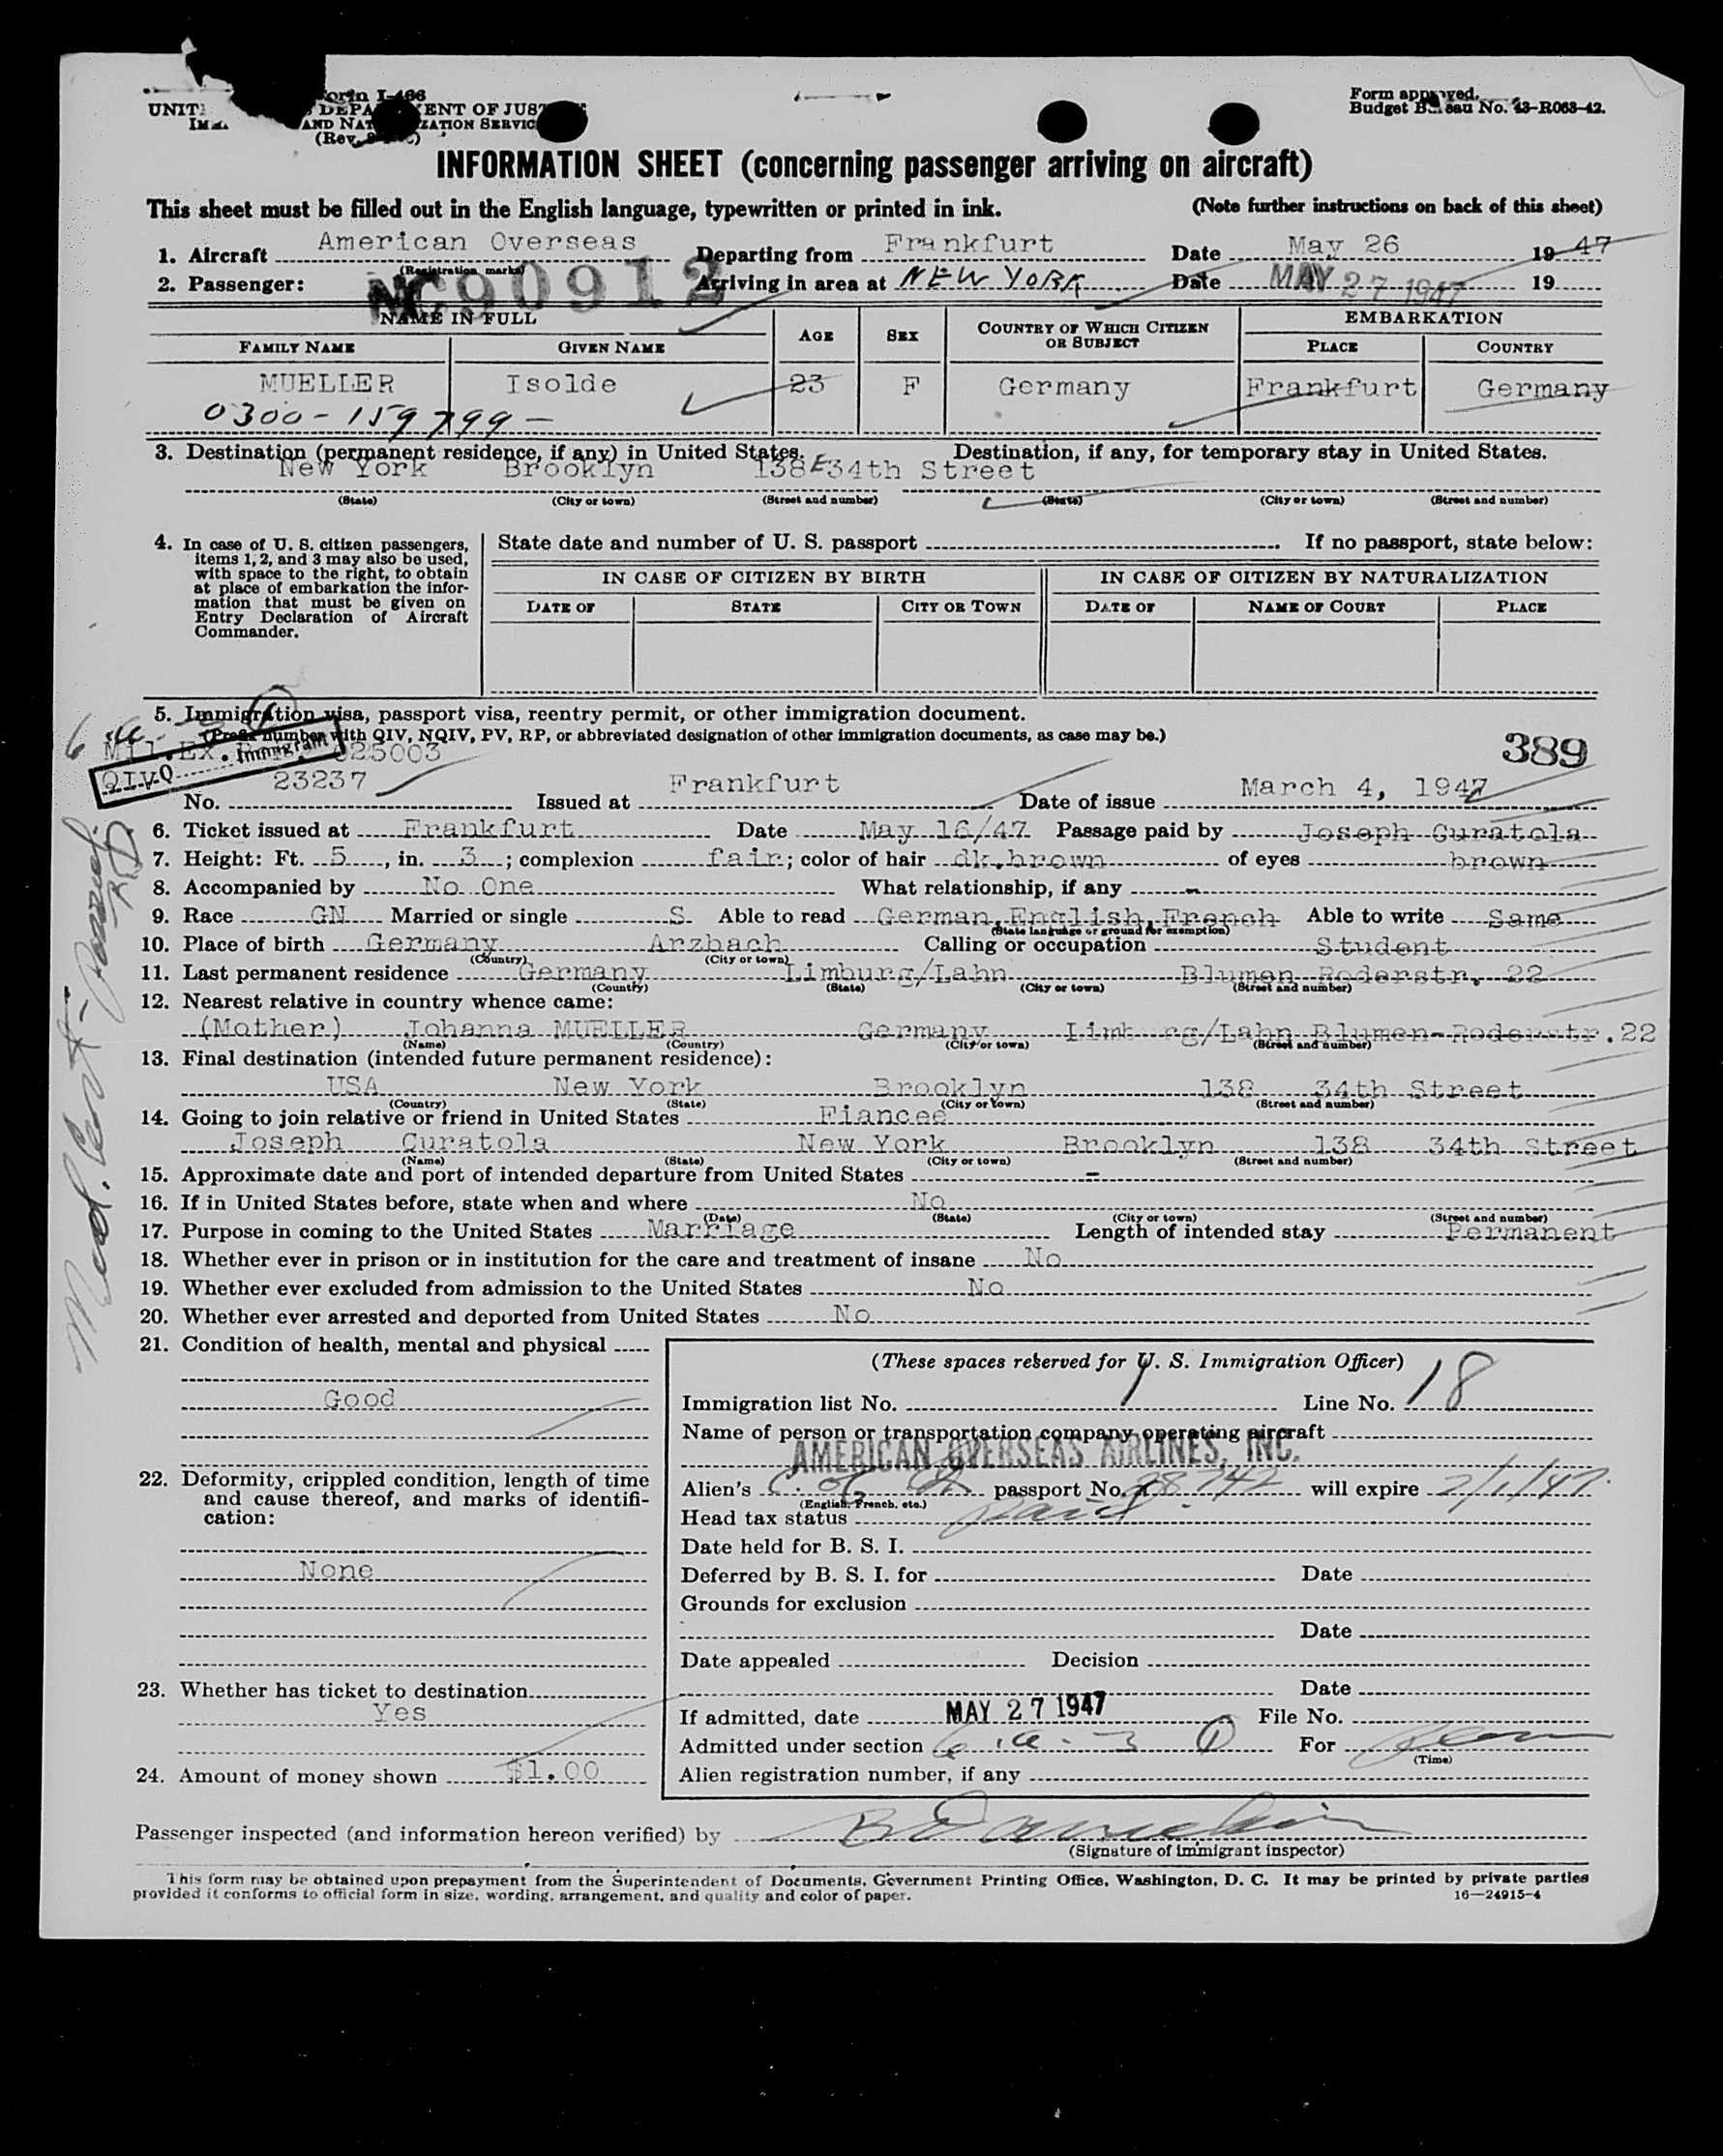 Form I-466
UNIT DEPA ENT OF JUS
AND NAT ZATION SERVIC
(Rev.
Form approved.
Budget Bureau No. 43-R063-42.
INFORMATION SHEET (concerning passenger arriving on aircraft)
This sheet must be filled out in the English language, typewritten or printed in ink. (Note further instructions on back of this sheet)
1. Aircraft American Overseas Departing from Frankfurt Date May 26 19 47
(Registration marks)
2. Passenger: NC90912 Arriving in area at NEW YORK Date MAY 27 1947 19
NAME IN FULL AGE SEX COUNTRY OF WHICH CITIZEN OR SUBJECT EMBARKATION
FAMILY NAME GIVEN NAME PLACE COUNTRY
MUELLER Isolde 23 F Germany Frankfurt Germany
0300-159799-
3. Destination (permanent residence, if any) in United States. Destination, if any, for temporary stay in United States.
New York Brooklyn 138 E 34th Street
(State) (City or town) (Street and number) (State) (City or town) (Street and number)
4. In case of U. S. citizen passengers, items 1, 2, and 3 may also be used, with space to the right, to obtain at place of embarkation the information that must be given on Entry Declaration of Aircraft Commander.
State date and number of U. S. passport If no passport, state below:
IN CASE OF CITIZEN BY BIRTH IN CASE OF CITIZEN BY NATURALIZATION
DATE OF STATE CITY OR TOWN DATE OF NAME OF COURT PLACE
5. Immigration visa, passport visa, reentry permit, or other immigration document.
(Prefix number with QIV, NQIV, PV, RP, or abbreviated designation of other immigration documents, as case may be.)
Mil.Ex. 025003 389
QIV-Q Immigrant
No. 23237 Issued at Frankfurt Date of issue March 4, 1947
6. Ticket issued at Frankfurt Date May 16/47 Passage paid by Joseph Curatola
7. Height: Ft. 5, in. 3; complexion fair; color of hair dk.brown of eyes brown
8. Accompanied by No One What relationship, if any -
9. Race GN Married or single S. Able to read German,English,French Able to write Same
(State language or ground for exemption)
10. Place of birth Germany Arzbach Calling or occupation Student
(Country) (City or town)
11. Last permanent residence Germany Limburg/Lahn Blumen-Roderstr. 22
(Country) (State) (City or town) (Street and number)
12. Nearest relative in country whence came:
(Mother) Johanna MUELLER Germany Limb rg/Lahn Blumen-Roderstr.22
(Name) (Country) (City or town) (Street and number)
13. Final destination (intended future permanent residence):
USA New York Brooklyn 138 34th Street
(Country) (State) (City or town) (Street and number)
14. Going to join relative or friend in United States Fiancee
Joseph Curatola New York Brooklyn 138 34th Street
(Name) (State) (City or town) (Street and number)
15. Approximate date and port of intended departure from United States -
16. If in United States before, state when and where No
(Date) (State) (City or town) (Street and number)
17. Purpose in coming to the United States Marriage Length of intended stay Permanent
18. Whether ever in prison or in institution for the care and treatment of insane No
19. Whether ever excluded from admission to the United States No
20. Whether ever arrested and deported from United States No
Med. Cert
21. Condition of health, mental and physical
Good
22. Deformity, crippled condition, length of time and cause thereof, and marks of identification:
None
23. Whether has ticket to destination
Yes
24. Amount of money shown $1.00
(These spaces reserved for U. S. Immigration Officer)
Immigration list No. 1 Line No. 18
Name of person or transportation company operating aircraft
AMERICAN OVERSEAS AIRLINES, INC.
Alien's passport No. will expire
(English, French, etc.)
Head tax status Paid
Date held for B. S. I.
Deferred by B. S. I. for Date
Grounds for exclusion
Date
Date appealed Decision
Date
If admitted, date MAY 27 1947 File No.
Admitted under section 6 a - 3 1 For
(Time)
Alien registration number, if any
Passenger inspected (and information hereon verified) by
(Signature of immigrant inspector)
This form may be obtained upon prepayment from the Superintendent of Documents, Government Printing Office, Washington, D. C. It may be printed by private parties
provided it conforms to official form in size, wording, arrangement, and quality and color of paper. 16—24915-4